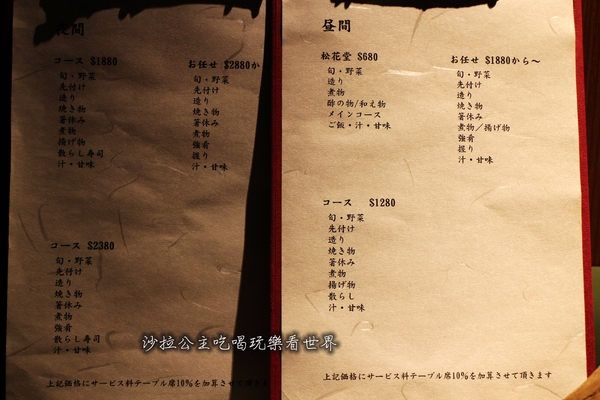 夜間
コース $1880
旬・野菜
先付け
造り
焼き物
箸休み
煮物
揚げ物
散らし寿司
汁・甘味
お任せ $2880か
旬・野菜
先付け
造り
焼き物
箸休み
煮物
強肴
握り
汁・甘味
コース $2380
旬・野菜
先付け
造り
焼き物
箸休み
煮物
強肴
散らし寿司
汁・甘味
上記価格にサービス料テーブル席10%を加算させて
昼間
松花堂 $680
旬・野菜
造り
煮物
酢の物/和え物
メインコース
ご飯・汁・甘味
お任せ $1880から〜
旬・野菜
先付け
造り
焼き物
箸休み
煮物/揚げ物
強肴
握り
汁・甘味
コース $1280
旬・野菜
先付け
造り
焼き物
箸休み
煮物
揚げ物
散らし
汁・甘味
上記価格にサービス料テーブル席10%を加算させて頂きます
沙拉公主吃喝玩樂看世界